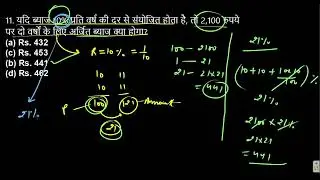 11. यदि ब्याज 10% प्रति वर्ष की दर से संयोजित होता है, तो 2,100 रूपये
पर दो वर्षों के लिए अर्जित ब्याज क्या होगा?
(a) Rs. 432
(c) Rs. 453
(b) Rs. 441
(d) Rs. 462
R = 10% = 1/10
10 11
10 11
100 121 Amount
P
21
21%
100 - 2100
1 - 21
21 - 21×21
= 441
21%
(10 + 10 + 10×10/100)%
21%
2100 × 21%
21×21
= 441